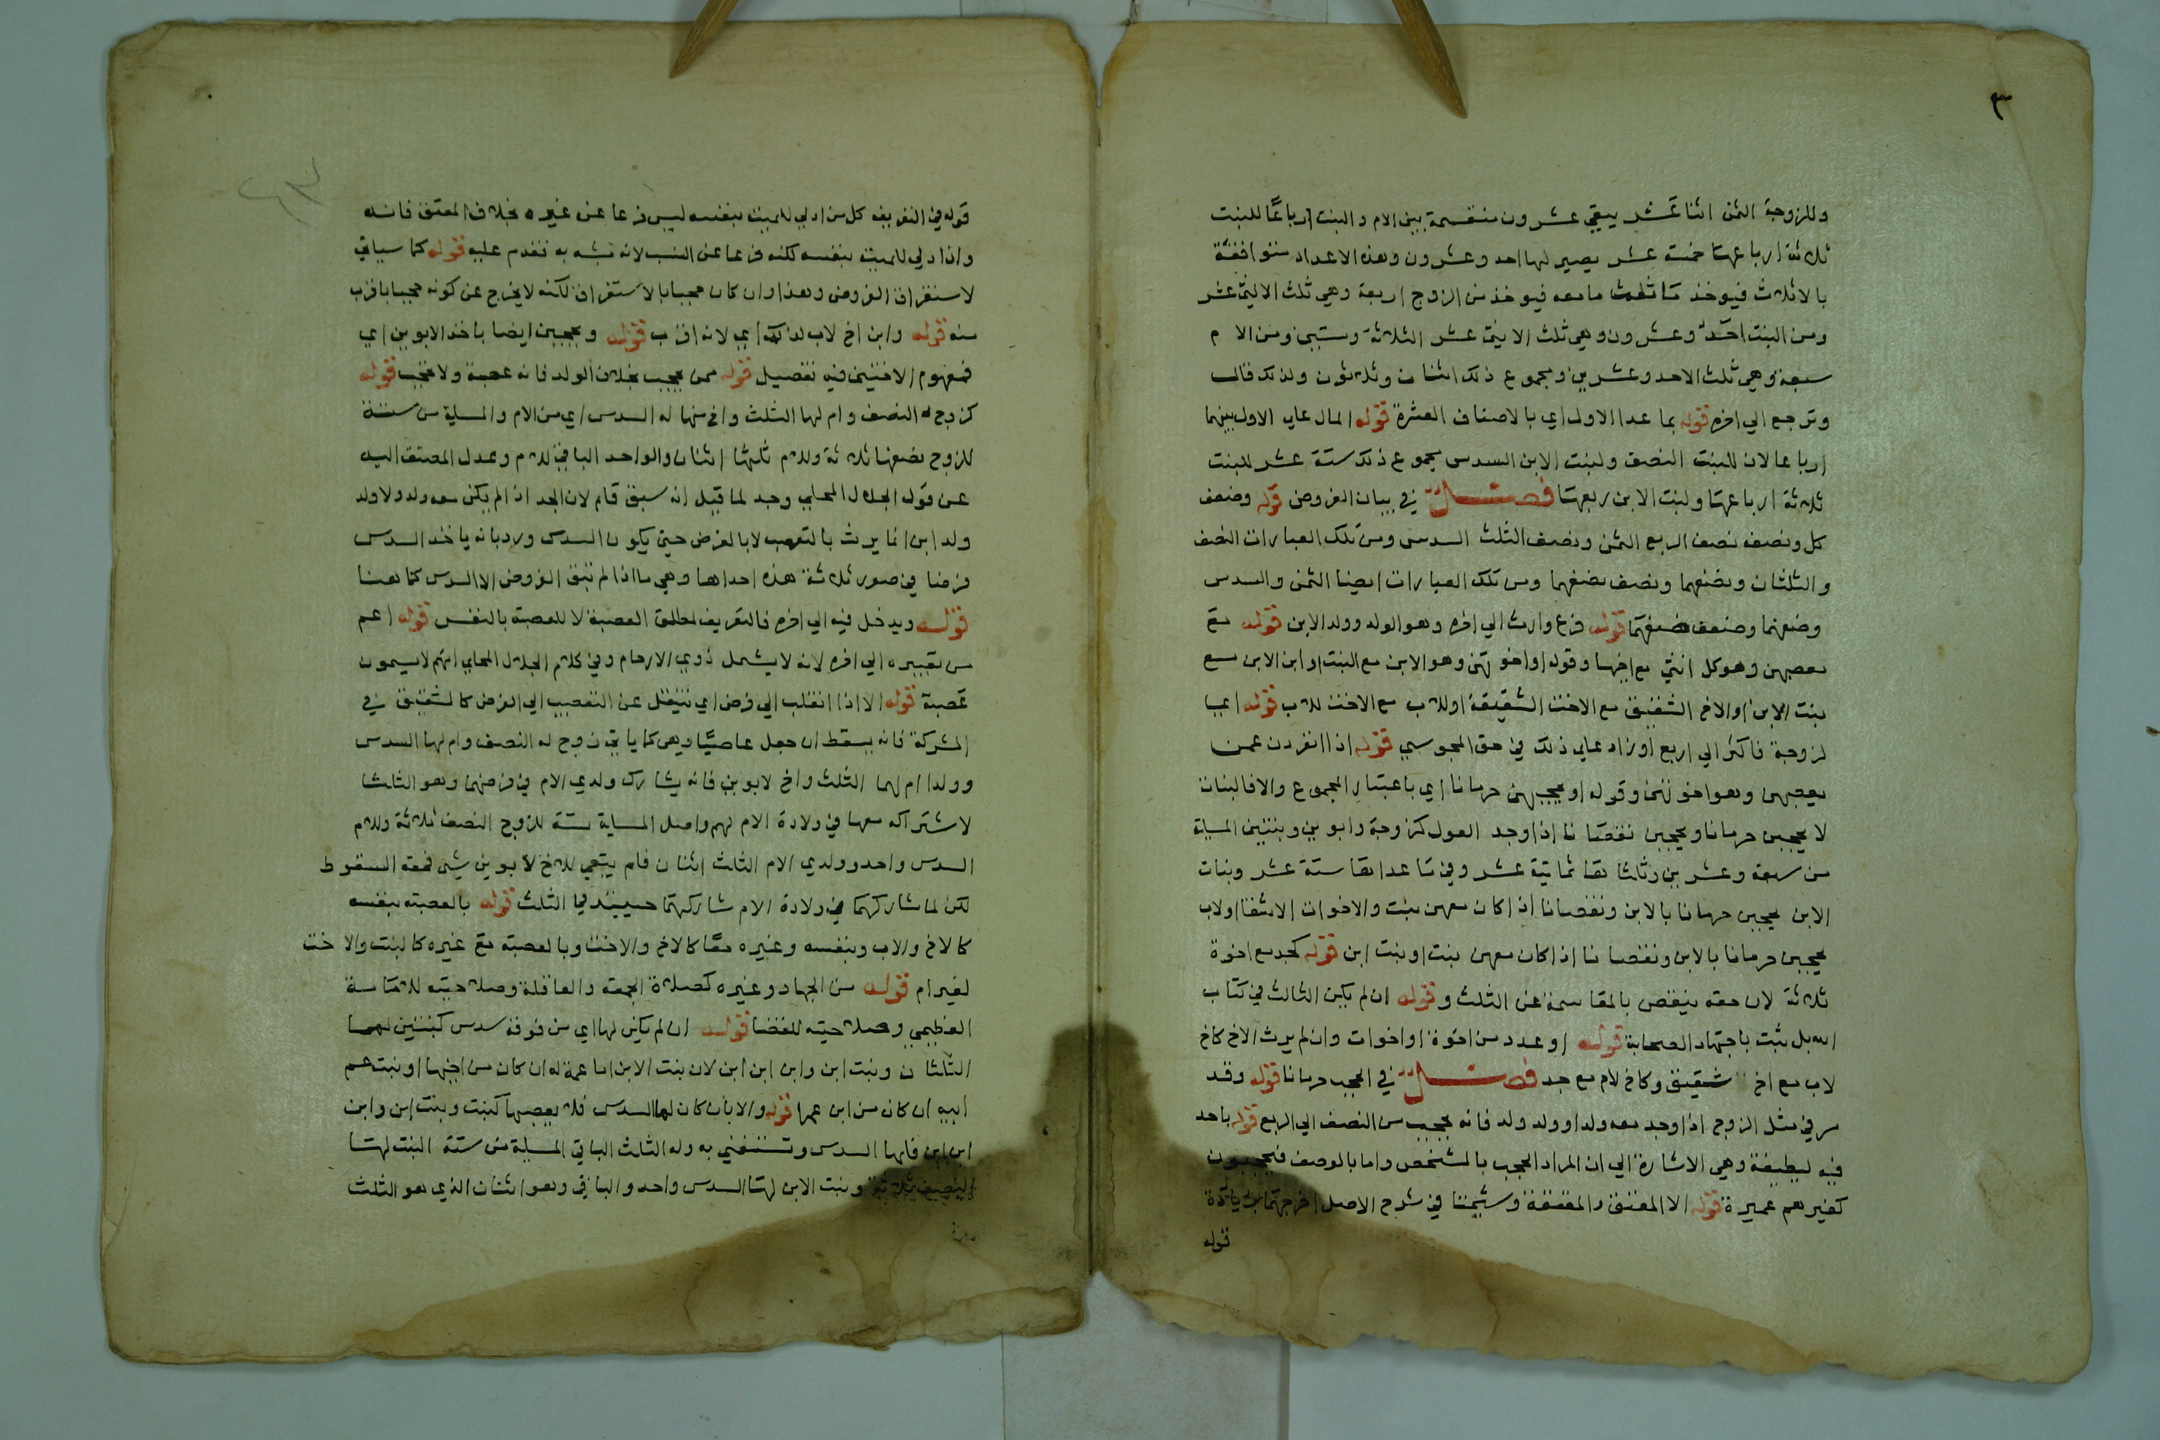 ٣
وللزوجة الثمن اثنا عشر يبقي عشرون منقسمة بين الام والبنت ارباعا للبنت
ثلاثة ارباعها خمسة عشر يصير لها احد وعشرون وهذه الاعداد متوافقة
بالاثلاث فيوخذ ما معه فيوخذ من الزوج اربعة وهي ثلث الاثني عشر
ومن البنت احد وعشرون وهي ثلث الاثني عشر الثلاثة وستين ومن الام
سبعة وهي ثلث الاحد وعشرين ومجموع ذلك اثنان وثلاثون ولذلك قال
وترجع الي اخره قوله بما عدا الاول اي بالاصناف العشرة قوله المال علي الاول بينهما
ارباعا لان للبنت النصف ولبنت الابن السدس مجموع ذلك ستة عشر للبنت
ثلاثة ارباعها ولبنت الابن ربعها فصل في بيان الفروض قوله وضعف
كل ونصفه نصف الربع الثمن ونصف الثلث السدس ومن تلك العبارات النصف
والثلثان ونصفهما ونصف نصفهما ومن تلك العبارات ايضا الثمن والسدس
وضعفهما وضعف ضعفهما قوله فرع وارث الي اخره وهو الولد وولد الابن قوله مع
معصبهن وهو كل انثي مع اخيها وقوله اواخوتهن وهو الابن مع البنت او ابن الابن مع
بنت الابن او الاخ الشقيق مع الاخت الشقيقة او للاب مع الاخت للاب قوله اي
لزوجة فاكثر الي اربع او زاد علي ذلك في حق المجوسي قوله اذا انفردن عمن
يعصبهن وهو اخوتهن وقوله او يحجبهن حرمانا اي باعتبار المجموع والا فالبنات
لا يحجبن حرمانا ويحجبن نقصانا اذا وجد العول كزوجة وابوين وبنتين المسالة
من سبعة وعشرين وثلثاها ثمانية عشر وفي ما عداها ستة عشر وبنات
الابن يحجبن حرمانا بالابن ونقصانا اذا كان معهن بنت والاخوات الاشقا او لاب
يحجبن حرمانا بالابن ونقصانا اذا كان معهن بنت او بنت ابن قوله كجد مع اخوة
ثلاثة لان حقه ينقص بالمقاسمة عن الثلث وقوله ان لم يكن الثالث في كتاب
الله بل ثبت باجتهاد الصحابة قوله او عدد من اخوة او اخوات وان لم يرث الاخ كاخ
لاب مع اخ شقيق وكاخ لام مع جد فصل في الحجب حرمانا قوله وقد
مر في مثل الزوج اذا وجد معه ولد او ولد ولد فانه يحجب من النصف الي الربع قوله باحد
فيه لطيفة وهي الاشارة الي ان المراد الحجب بالشخص واما بالوصف فيحجبون
كغيرهم عميرة قوله الا المعتق والمعتقة وشيخنا في شرح الاصل اخرجهما
قوله
قوله في التعريف كل من ادلي للميت بنفسه ليس فرعا عن غيره بخلاف المعتق فانه
وان ادلي للميت بنفسه لكنه فرعا عن النسب لانه مشبه به تقدم عليه قوله كما سياتي
لاستغراق الفروض وهذا وان كان حجبا بالاستغراق لكنه لا يخرج عن كونه حجبا باقرب
منه قوله وابن اخ لاب لذلك اي لانه اقرب قوله ويحجبن ايضا باخذ الابوين اي
فمفهوم الاختين فيه تفصيل قوله ممن يحجب بخلاف الولد فانه عصبة ولا تحجب قوله
كزوج له النصف وام لها الثلث واخ منها له السدس اي من الام والمسالة من ستة
للزوج نصفها ثلاثة وللام ثلثها اثنان والواحد الباقي للام وعدل المصنف اليه
عن قول الجلال المحلي وجد لما قيل انه سبق قلم لان الجد اذا لم يكن معه ولد ولا ولد
ولد ابن انما يرث بالتعصيب لا بالفرض حتي يكون السدس ورد بانه ياخذ السدس
فرضا في صور ثلاثة هذه احداها وهي ما اذا لم تبق الفروض الا السدس كما هنا
قوله ويدخل فيه الي اخره فالتعريف لمطلق العصبة لا للعصبة بالنفس قوله اعم
من تعبيره الي اخره لانه لا يشمل ذوي الارحام وفي كلام الجلال المحلي انهم لا يسمون
عصبة قوله الا اذا انقلب الي فرض اي ينتقل عن التعصيب الي الفرض كالشقيق في
المشركة فانه يسقط ان جعل عاصبا وهي كما ياتي زوج له النصف وام لها السدس
وولدا ام لهما الثلث واخ لابوين فانه يشارك ولدي الام في فرضهما وهو الثلث
لاشتراكه معهما في ولادة الام لهم واصل المسالة ستة للزوج النصف ثلاثة وللام
السدس واحد وولدي الام الثلث اثنان فلم يبقي للاخ لابوين شي فحقه السقوط
لكن لما شاركهما في ولادة الام شاركهما حينئذ في الثلث قوله بالعصبة بنفسه
كالاخ والاب وبنفسه وغيره معا كالاخ والاخت وبالعصبة مع غيره كالبنت والاخت
لغير ام قوله من الجهاد وغيره كصلاة الجمعة والعاقلة وصلاحيته للامامة
العظمي وصلاحيته للقضا قوله ان لم يكن لها اي من فوقه سدس كبنتين لهما
الثلثان وبنت ابن وابن ابن ابن لان بنت الابن اما عمة له ان كان من اخيها او بنت عم
ابيه ان كان من ابن عمها قوله والا بان كان لها السدس فلا يعصبها كبنت وبنت ابن وابن
ابن ابن فلها السدس وتستغني به وله الثلث الباقي المسالة من ستة البنت لها
النصف ثلاثة وبنت الابن لها السدس واحد والباقي وهو اثنان الذي هو الثلث